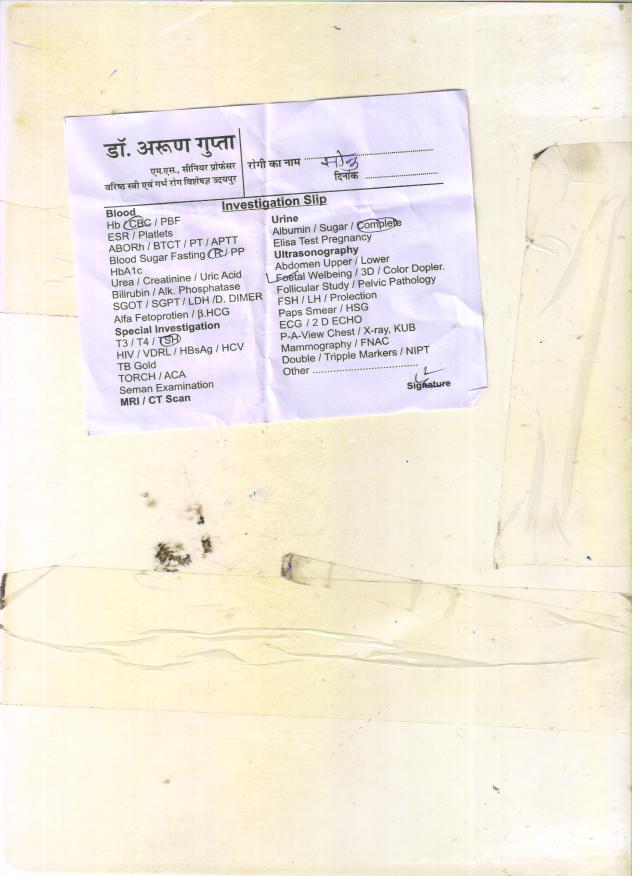 डॉ. अरूण गुप्ता
एम.एस., सीनियर प्रोफेसर
वरिष्ठ स्त्री एवं गर्भ रोग विशेषज्ञ उदयपुर
रोगी का नाम
दिनांक
Investigation Slip
Blood
Hb / CBC / PBF
ESR / Platlets
ABORh / BTCT / PT / APTT
Blood Sugar Fasting / R / PP
HbA1c
Urea / Creatinine / Uric Acid
Bilirubin / Alk. Phosphatase
SGOT / SGPT / LDH /D. DIMER
Alfa Fetoprotien / β.HCG
Special Investigation
T3 / T4 / TSH
HIV / VDRL / HBsAg / HCV
TB Gold
TORCH / ACA
Seman Examination
MRI / CT Scan
Urine
Albumin / Sugar / Complete
Elisa Test Pregnancy
Ultrasonography
Abdomen Upper / Lower
Foetal Welbeing / 3D / Color Dopler.
Follicular Study / Pelvic Pathology
FSH / LH / Prolection
Paps Smear / HSG
ECG / 2 D ECHO
P-A-View Chest / X-ray, KUB
Mammography / FNAC
Double / Tripple Markers / NIPT
Other
Signature